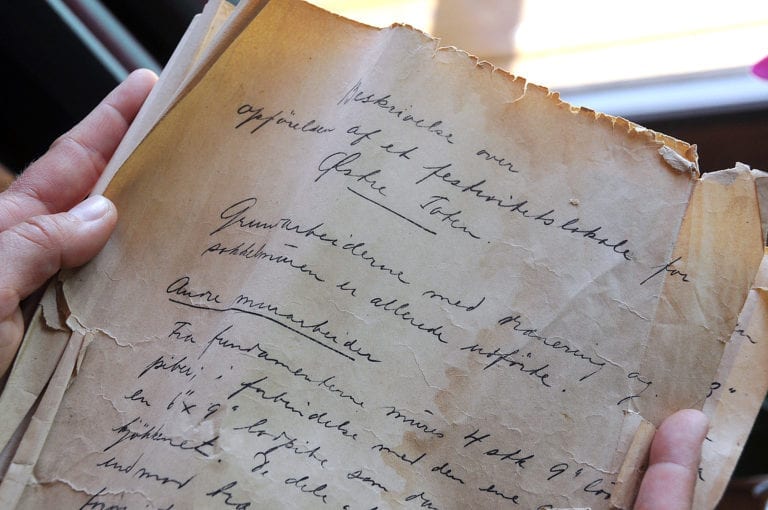 Beskrivelse over
opførelsen af et festivitetslokale for
Østre Toten.
Grundarbeiderne med drænering og
sokkelmuren er allerede udførte.
Andre murarbeider
Fra fundamenterne mures 4 stk 9"
piber, i forbindelse med den ene
en 6"x9" som
kjøkkenet. De dele
3"